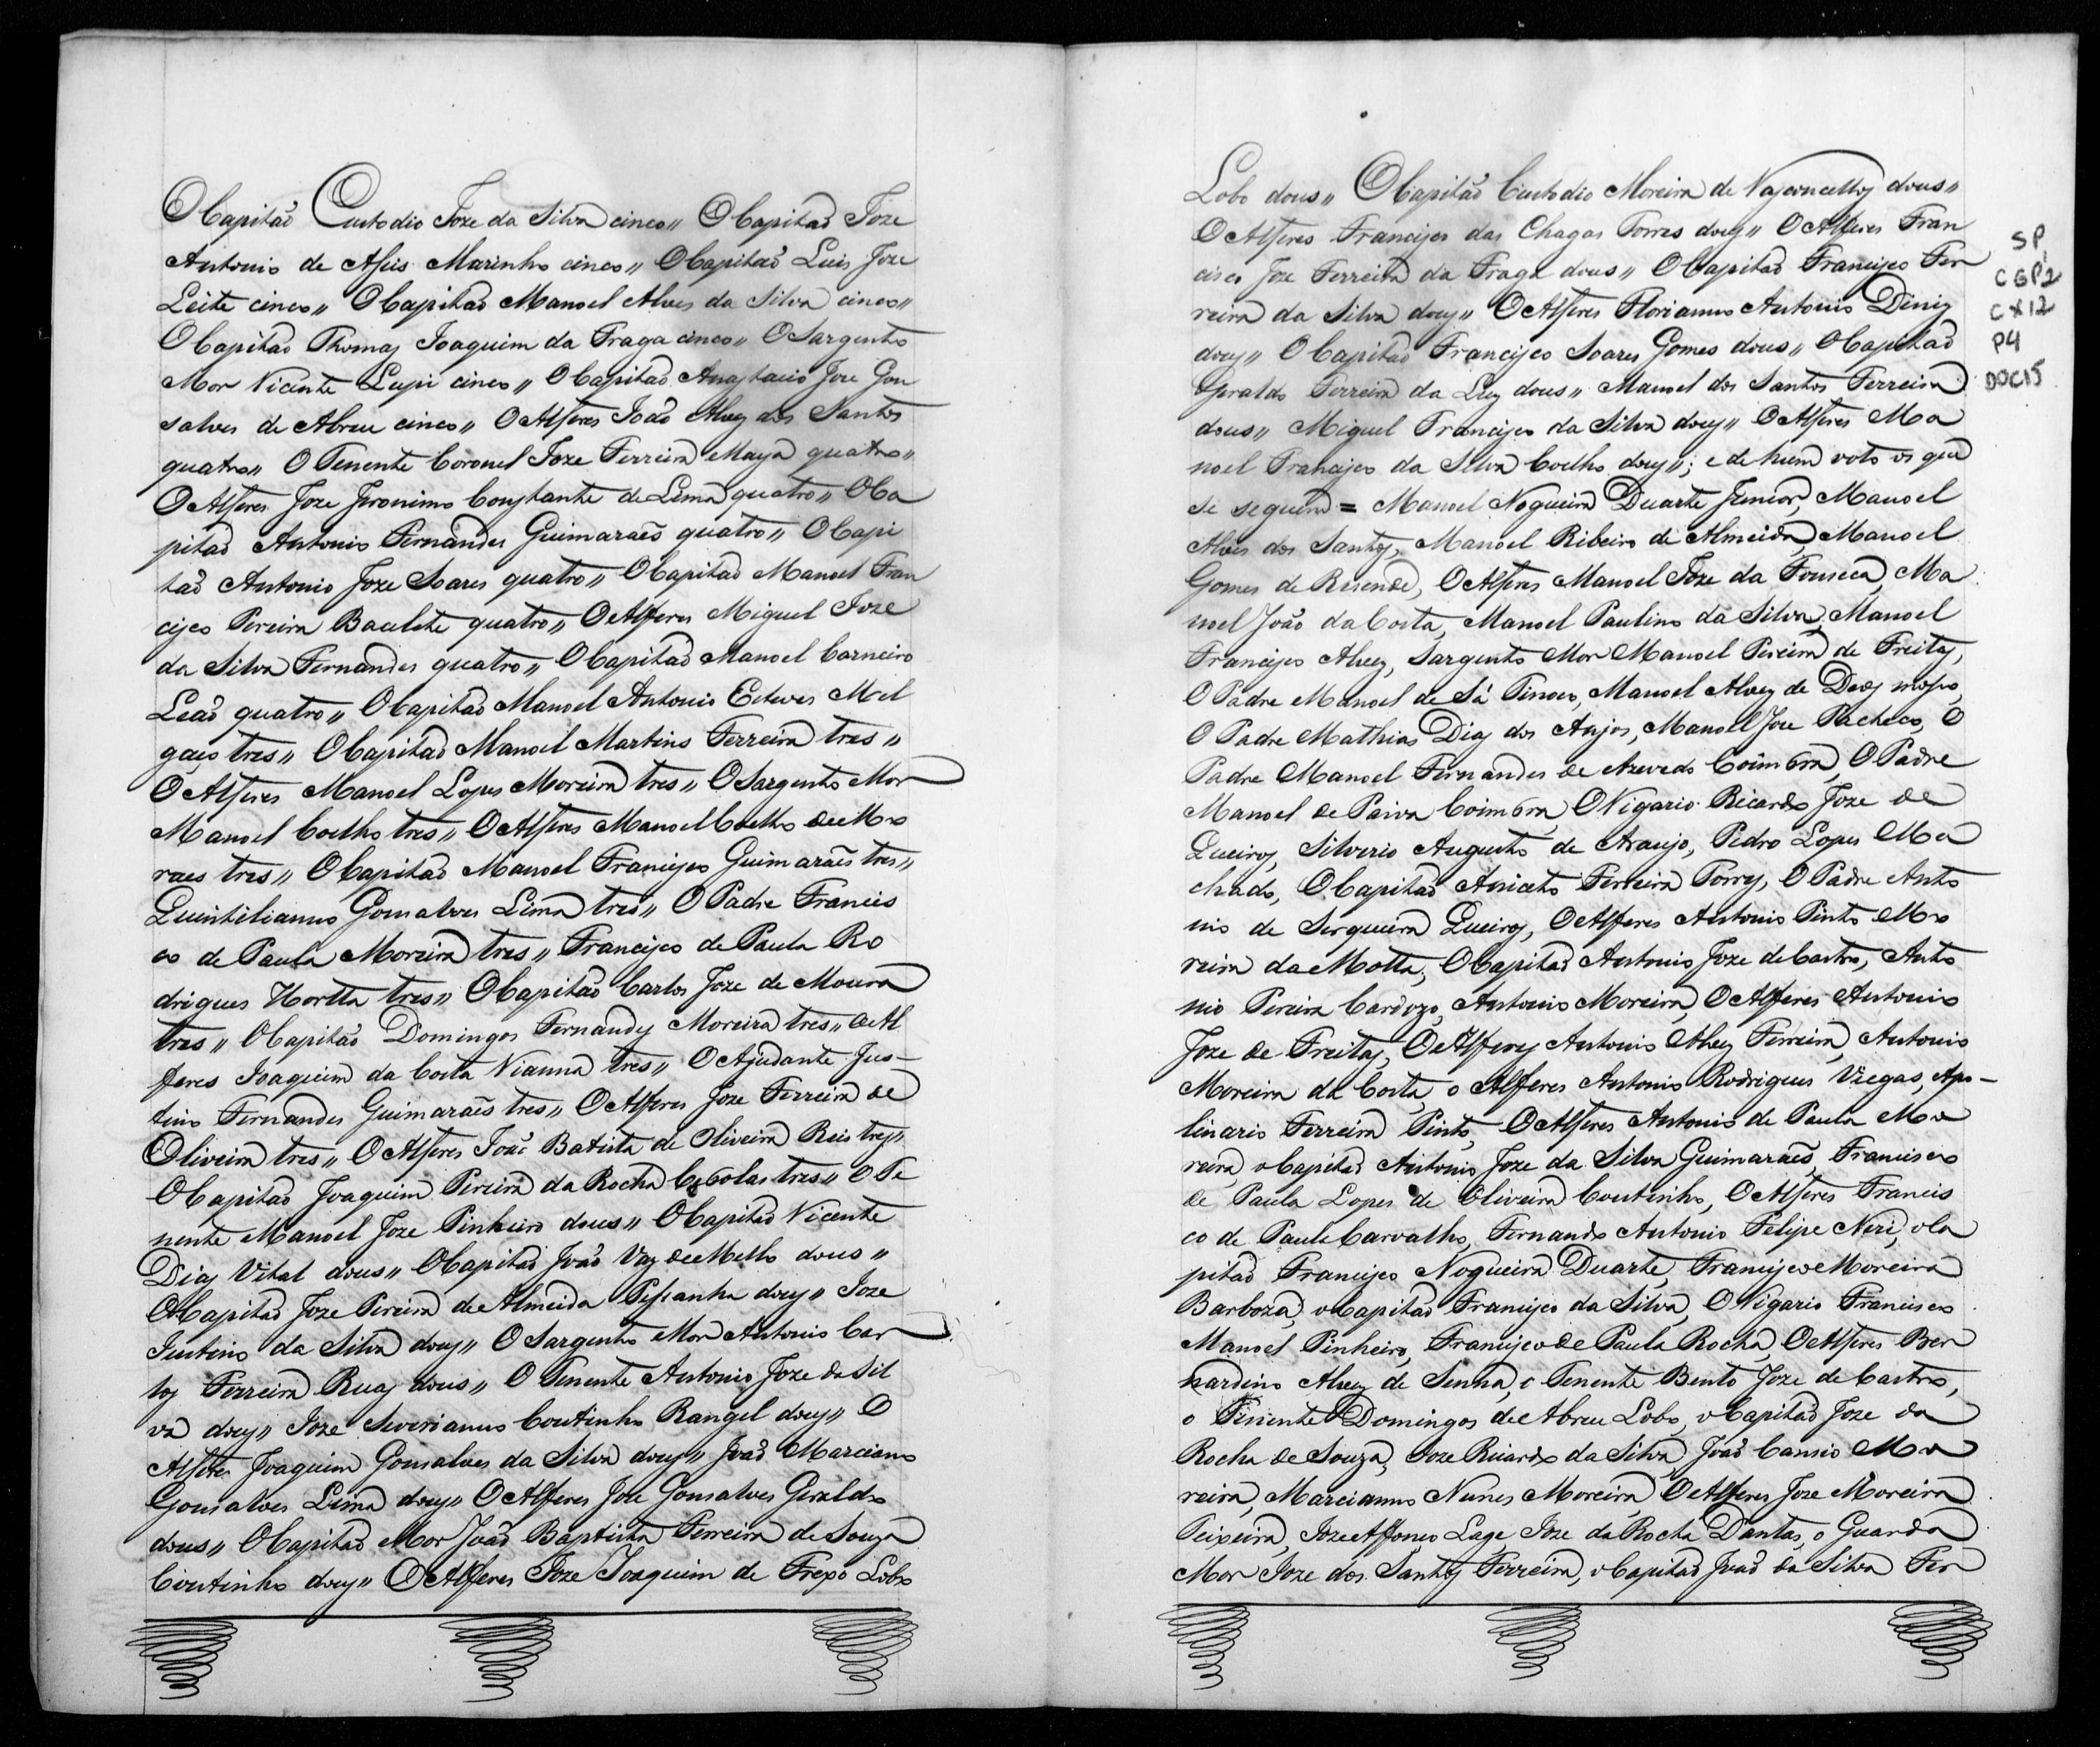 O Capitaõ Custodio Joze da Silva cinco,, O Capitaõ Joze
Antonio de Assis Marinho cinco,, O Capitaõ Luis Joze
Leite cinco,, O Capitaõ Manoel Alves da Silva cinco,,
O Capitaõ Thomas Joaquim da Fraga cinco,, O Sargento
Mor Vicente Luppi cinco,, O Capitaõ Anastacio Joze Gon
salves de Abreu cinco,, O Alferes Joaõ Alves dos Santos
quatro,, O Tenente Coronel Joze Ferreira Maya quatro,,
O Alferes Joze Jeronimo Constante de Lima quatro,, O Ca
pitaõ Antonio Fernandes Guimaraẽs quatro,, O Capi
taõ Antonio Joze Soares quatro,, O Capitaõ Manoel Fran
cisco Pereira quatro,, O Alferes Miguel Joze
da Silva Fernandes quatro,, O Capitaõ Manoel Carneiro
Leaõ quatro,, O Capitaõ Manoel Antonio Esteves Mel
gaço tres,, O Capitaõ Manoel Martins Ferreira tres,,
O Alferes Manoel Lopes Moreira tres,, O Sargento Mor
Manoel Coelho tres,, O Alferes Manoel Coelho de Mo
raes tres,, O Capitaõ Manoel Francisco Guimaraẽs tres,,
Quintilianno Gonsalves Lima tres,, O Padre Francis
co de Paula Moreira tres,, Francisco de Paula Ro
drigues Hortta tres,, O Capitaõ Carlos Joze de Moura
tres,, O Capitaõ Domingos Fernandes Moreira tres,, O Al
feres Joaquim da Costa Vianna tres,, O Ajudante Jus-
tino Fernandes Guimaraẽs tres,, O Alferes Joze Ferreira de
Oliveira tres,, O Alferes Joaõ Batista de Oliveira Reis tres,,
O Capitaõ Joaquim Pereira da Rocha tres,, O Te
nente Manoel Joze Pinheiro dous,, O Capitaõ Vicente
Dias Vital dous,, O Capitaõ Joaõ Vaz de Mello dous,,
O Capitaõ Joze Pereira de Almeida Pessanha dous,, Joze
Justino da Silva dous,, O Sargento Mor Antonio Car
los Ferreira Ruas dous,, O Tenente Antonio Joze da Sil
va dous,, Joze Severianno Coutinho Rangel dous,, O
Alferes Joaquim Gonsalves da Silva dous,, Joaõ Marciano
Gonsalves Lima dous,, O Alferes Joze Gonsalves Geraldo
dous,, O Capitaõ Mor Joaõ Baptista Ferreira de Souza
Coutinho dous,, O Alferes Joze Joaquim de Lobo
Lobo dous,, O Capitaõ Custodio Moreira de Vasconcellos dous,,
O Alferes Francisco das Chagas Torres dous,, O Alferes Fran
cisco Joze Ferreira da Fraga dous,, O Capitaõ Francisco Fer
reira da Silva dous,, O Alferes Florianno Antonio Diniz
dous,, O Capitaõ Francisco Soares Gomes dous,, O Capitaõ
Geraldo Ferreira da Luz dous,, Manoel dos Santos Ferreira
dous,, Miguel Francisco da Silva dous,, O Alferes Ma
noel Francisco da Silva Coelho dous,,; e de hum voto os que
se seguem = Manoel Nogueira Duarte Junior, Manoel
Alves dos Santos, Manoel Ribeiro de Almeida, Manoel
Gomes de Resende, O Alferes Manoel Joze da Fonseca, Ma
noel Joaõ da Costa, Manoel Paulino da Silva, Manoel
Francisco Alves, Sargento Mor Manoel Pereira de Freitas,
O Padre Manoel de Sá Tinoco, Manoel Alves de Deos
O Padre Mathias Dias dos Anjos, Manoel Joze Pacheco, O
Padre Manoel Fernandes de Azevedo Coimbra, O Padre
Manoel de Paiva Coimbra, O Vigario Ricardo Joze de
Queiros, Silverio Augusto de Araujo, Pedro Lopes Ma
chado, O Capitaõ Aniceto Ferreira Torres, O Padre Anto
nio de Serqueira Queiros, O Alferes Antonio Pinto Mo
reira da Motta, O Capitaõ Antonio Joze de Castro, Anto
nio Pereira Cardozo, Antonio Moreira, O Alferes Antonio
Joze de Freitas, O Alferes Antonio Alves Ferreira, Antonio
Moreira da Costa, o Alferes Antonio Rodrigues Viegas, Apo-
linario Ferreira Pinto, O Alferes Antonio de Paula Mo
reira, o Capitaõ Antonio Joze da Silva Guimaraẽs, Francisco
de Paula Lopes de Oliveira Coutinho, O Alferes Francis
co de Paula Carvalho, Fernando Antonio Felipe Neri, o Ca
pitaõ Francisco Nogueira Duarte, Francisco Moreira
Barboza, o Capitaõ Francisco da Silva, O Vigario Francisco
Manoel Pinheiro, Francisco de Paula Rocha, O Alferes Ber
nardino Alves de Senna, o Tenente Bento Joze de Castro,
o Tenente Domingos de Abreu Lobo, o Capitaõ Joze da
Rocha de Souza, Joze Ricardo da Silva, Joaõ Cansio Mo
reira, Marcianno Nunes Moreira, O Alferes Joze Moreira
Teixeira, Joze Affonso Lage, Joze da Rocha Dantas, o Guarda
Mor Joze dos Santos Ferreira, o Capitaõ Joaõ da Silva Fer
SP
CGP2
CX12
P4
DOC15